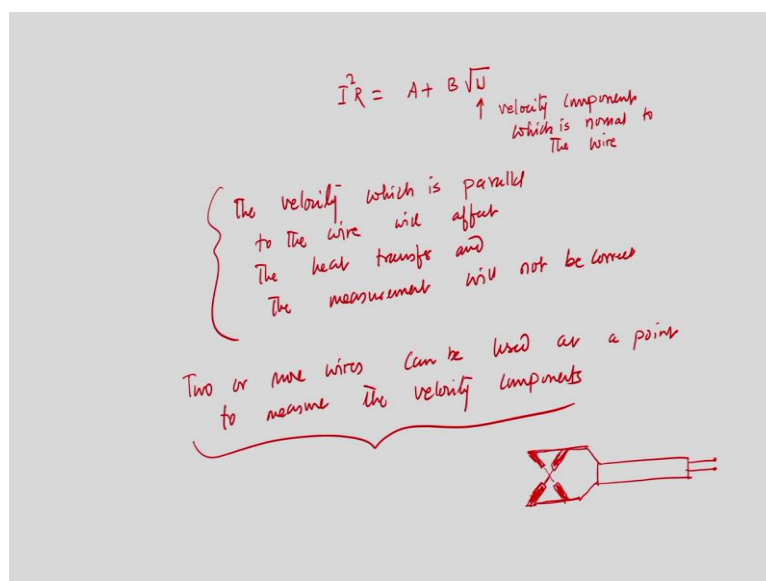 I²R = A + B √U
↑ velocity component
which is normal to
The wire
The velocity which is parallel
to the wire will affect
The heat transfer and
The measurement will not be correct
Two or more wires can be used at a point
to measure the velocity components